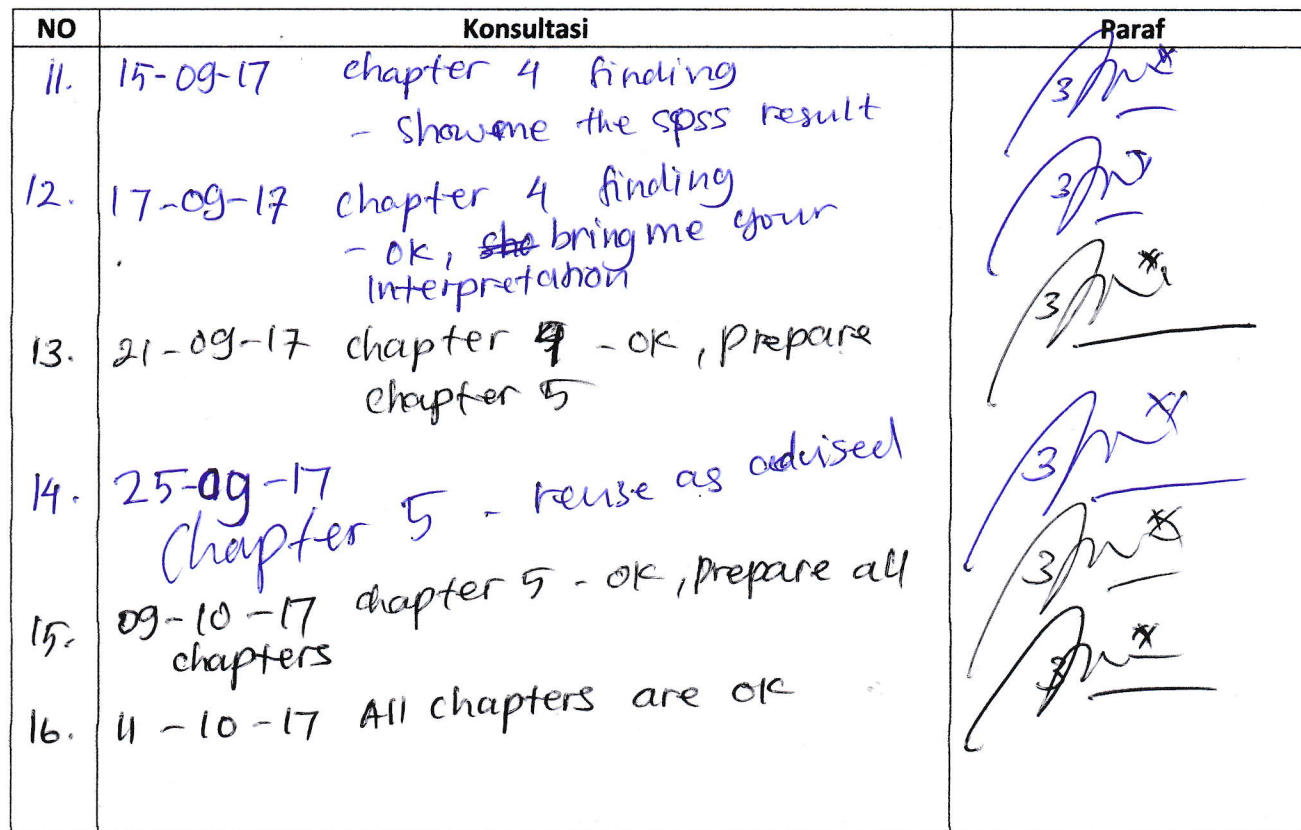 NO Konsultasi Paraf
11. 15-09-17 chapter 4 finding
- show me the spss result
12. 17-09-17 chapter 4 finding
- ok, sho bring me your
interpretation
13. 21-09-17 chapter 4 - ok, prepare
chapter 5
14. 25-09-17
Chapter 5 - revise as advised
15. 09-10-17 chapter 5 - ok, prepare all
chapters
16. 11-10-17 All chapters are ok